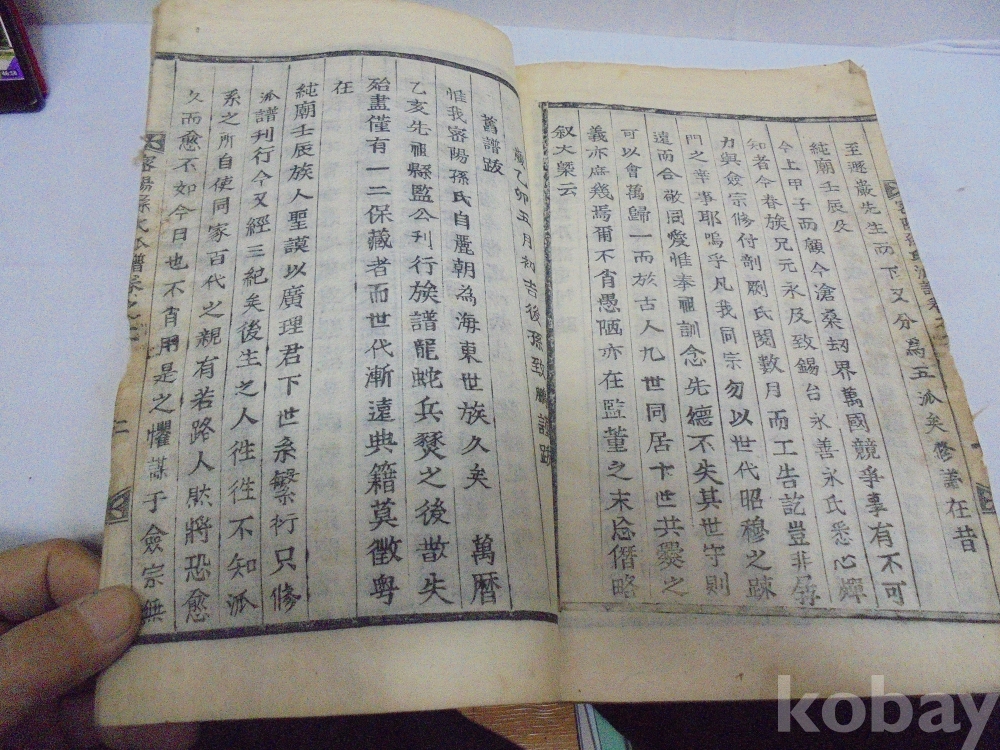 至遯巖先生而下又分為五派矣修譜在昔
純廟壬辰及
今上甲子而顧今滄桑刼界萬國競爭事有不可
知者今春族兄元永及致錫台永善永氏悉心殫
力與僉宗修付剞劂氏閱數月而工告訖豈非吾
門之幸事耶嗚乎凡我同宗勿以世代昭穆之踈
遠而合敬同愛惟奉祖訓念先德不失其世守則
可以會萬歸一而族古人九世同居卞世共爨之
義亦庶幾焉爾不肖愚陋亦在監董之末忘僭略
叙大槩云
乙卯五月初吉後孫致 謹跋
舊譜跋
惟我密陽孫氏自麗朝為海東世族久矣 萬曆
乙亥先祖縣監公刊行族譜龍蛇兵燹之後散失
殆盡僅有一二保藏者而世代漸遠典籍莫徵粤
在
純廟壬辰族人聖謨以廣理君下世系繁衍只修
派譜刊行今又經三紀矣後生之人徃徃不知派
系之所自使同家百代之親有若路人然將恐愈
久而愈不如今日也不肖用是之懼謀于僉宗無
密陽孫氏派譜卷之
二
kobay